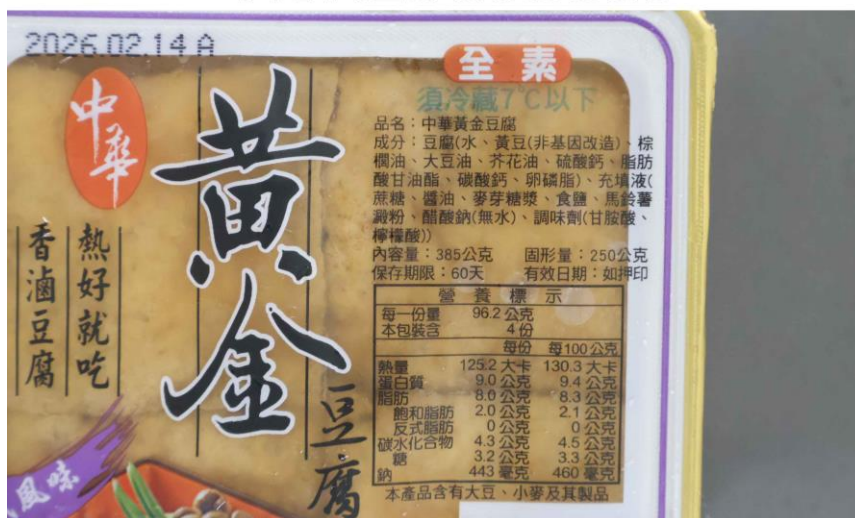 2026.02.14 A
全素
須冷藏7℃以下
中華
黃金
豆腐
熱好就吃
香滷豆腐
風味
品名：中華黃金豆腐
成分：豆腐(水、黃豆(非基因改造)、棕
櫚油、大豆油、芥花油、硫酸鈣、脂肪
酸甘油酯、碳酸鈣、卵磷脂)、充填液(
蔗糖、醬油、麥芽糖漿、食鹽、馬鈴薯
澱粉、醋酸鈉(無水)、調味劑(甘胺酸、
檸檬酸))
內容量：385公克 固形量：250公克
保存期限：60天 有效日期：如押印
營養標示
每一份量 96.2 公克
本包裝含 4 份
每份 每100公克
熱量 125.2 大卡 130.3 大卡
蛋白質 9.0 公克 9.4 公克
脂肪 8.0 公克 8.3 公克
飽和脂肪 2.0 公克 2.1 公克
反式脂肪 0 公克 0 公克
碳水化合物 4.3 公克 4.5 公克
糖 3.2 公克 3.3 公克
鈉 443 毫克 460 毫克
本產品含有大豆、小麥及其製品